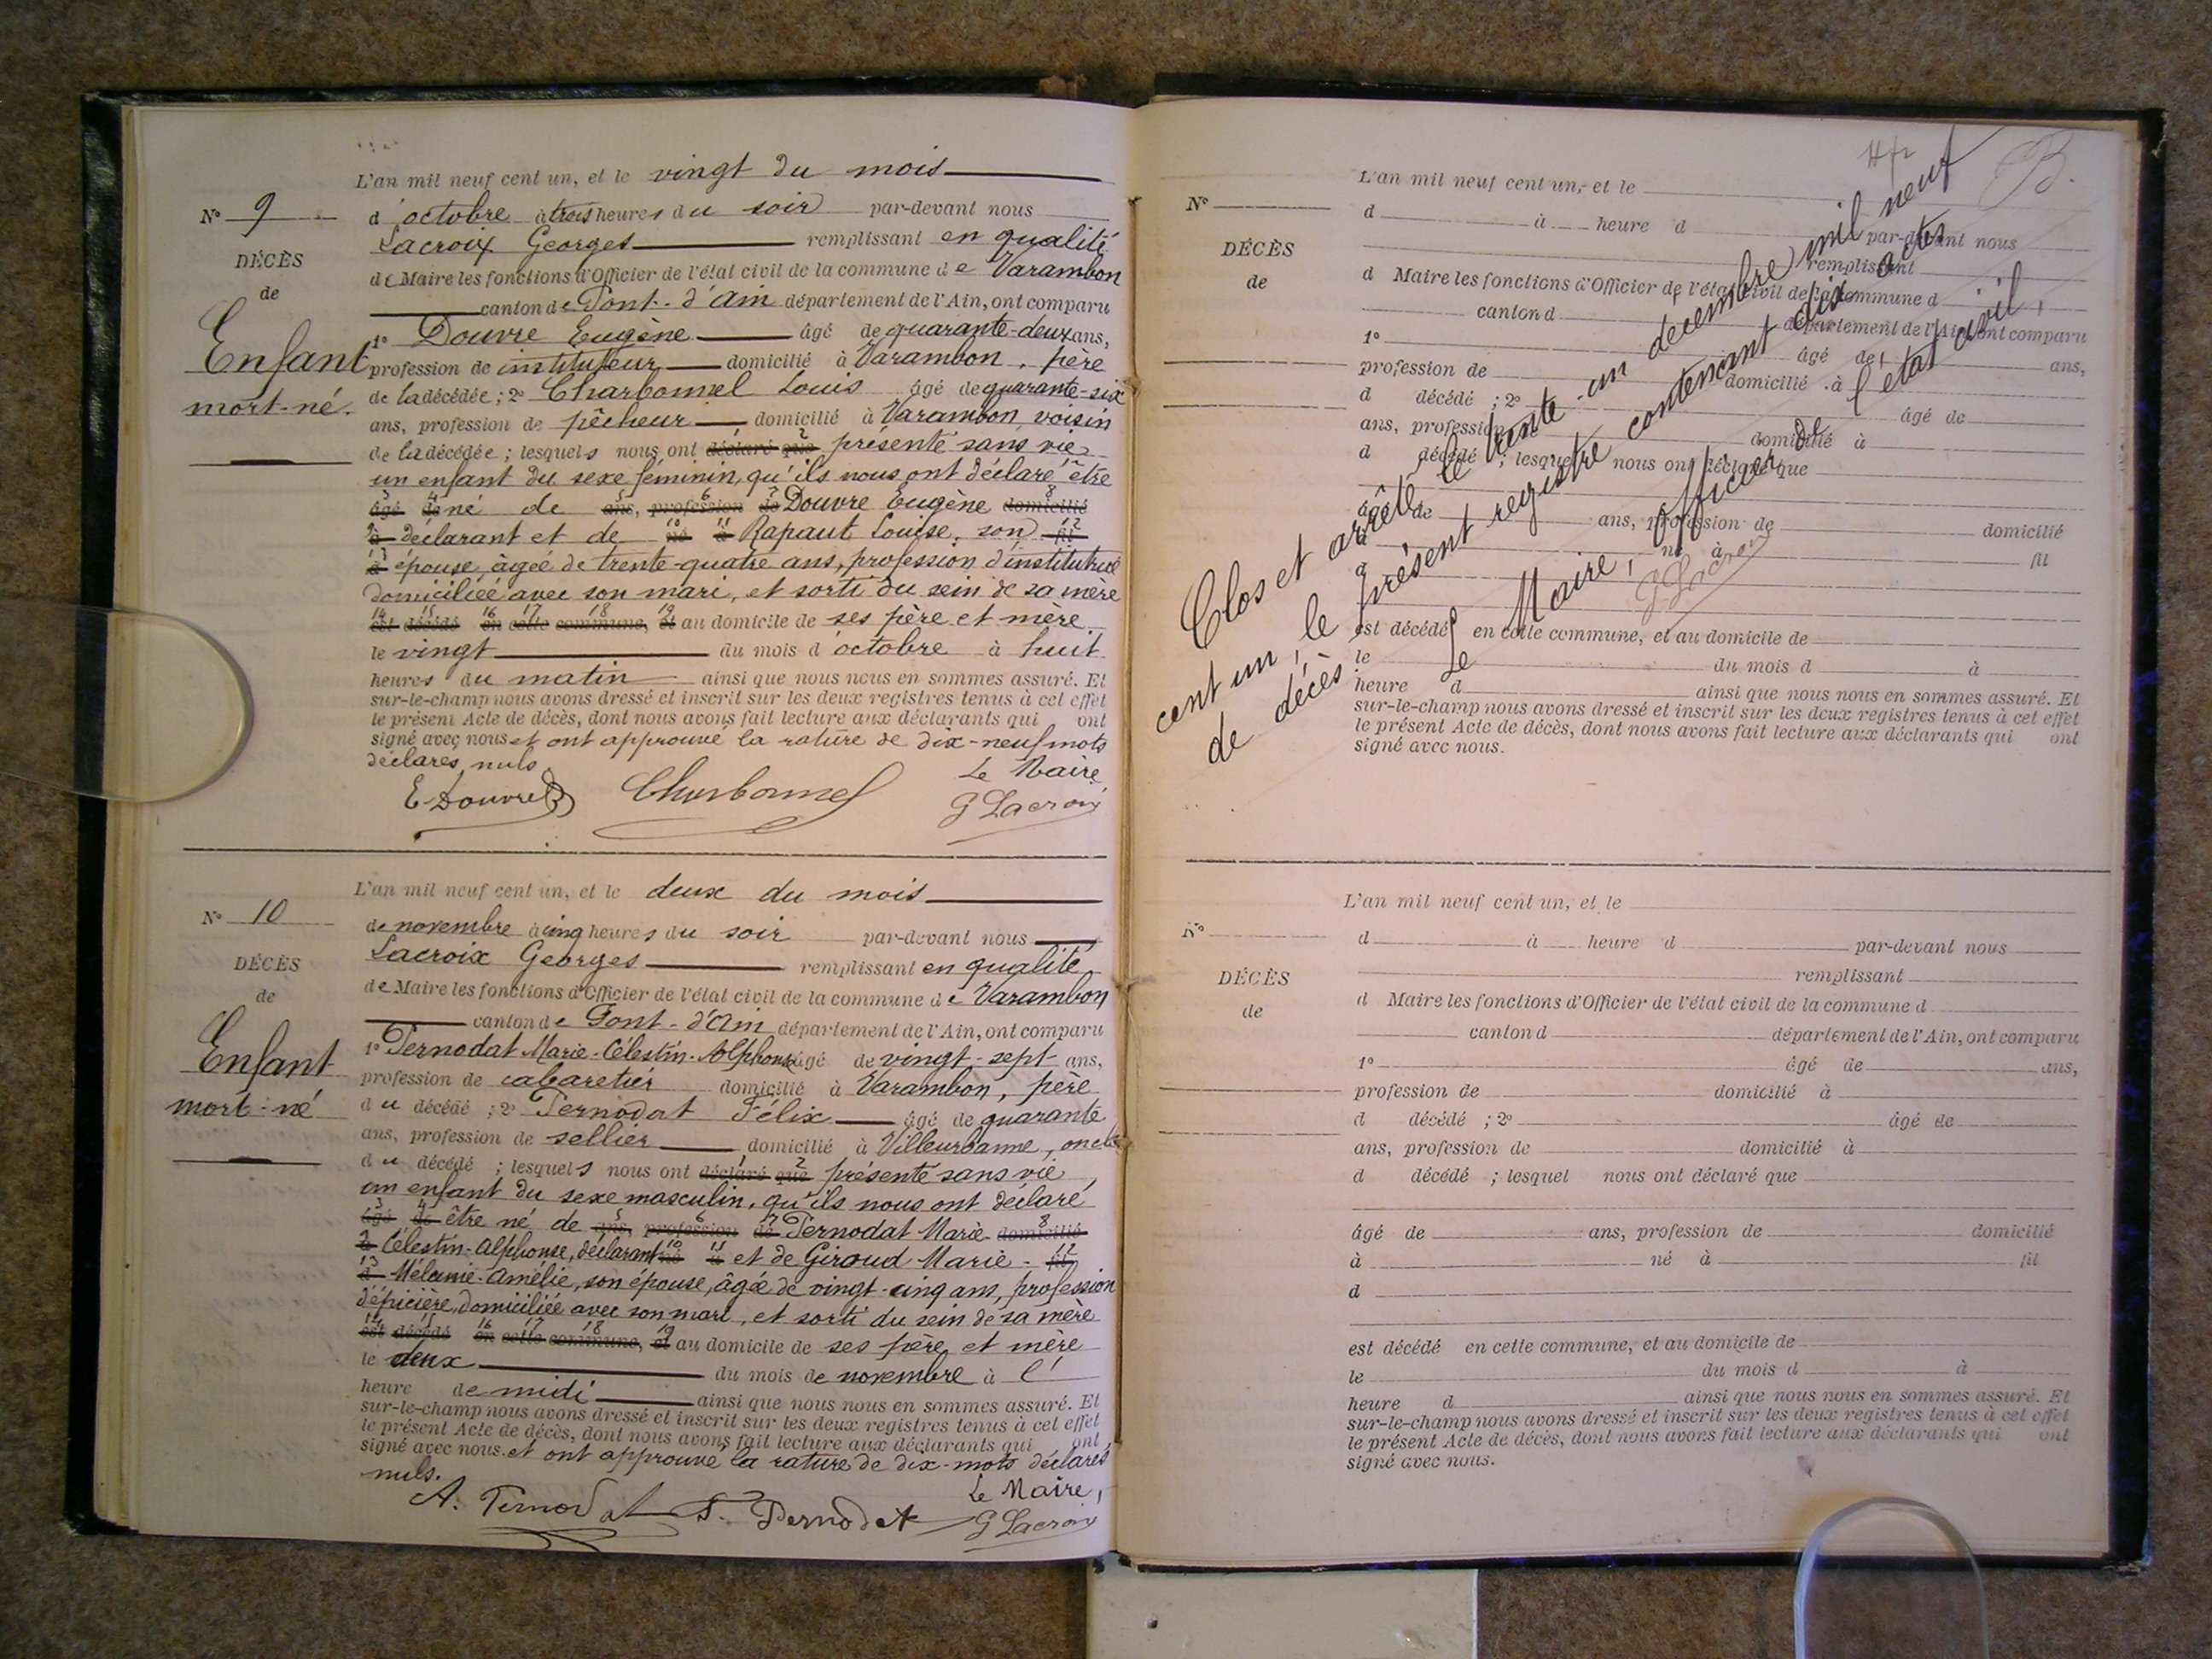 L'an mil neuf cent un, et le vingt du mois
N° 9
d'octobre à trois heures du soir par-devant nous
DÉCÈS
Lacroix Georges remplissant en qualité
de
de Maire les fonctions d'Officier de l'état civil de la commune de Varambon
canton de Pont-d'Ain département de l'Ain, ont comparu
Enfant
1° Douvre Eugène âgé de quarante-deux ans,
profession de instituteur domicilié à Varambon, père
mort-né.
de la décédée ; 2° Charbonnel Louis âgé de quarante-six
ans, profession de pêcheur domicilié à Varambon, voisin
de la décédée ; lesquels nous ont déclaré que présenté sans vie
un enfant du sexe féminin, qu'ils nous ont déclaré être
âgé de né de ans, profession de Douvre Eugène domicilié
à déclarant et de né à Rapaut Louise, son fil
d épouse, âgée de trente-quatre ans, profession d'institutrice
domiciliée avec son mari, et sorti du sein de sa mère
est décédé en cette commune, et au domicile de ses père et mère
le vingt du mois d'octobre à huit
heures du matin ainsi que nous nous en sommes assuré. Et
sur-le-champ nous avons dressé et inscrit sur les deux registres tenus à cet effet
le présent Acte de décès, dont nous avons fait lecture aux déclarants qui ont
signé avec nous et ont approuvé la rature de dix-neuf mots
déclarés nuls.
Le Maire
E Douvre Charbonnel G Lacroix
L'an mil neuf cent un, et le deux du mois
N° 10
de novembre à cinq heures du soir par-devant nous
DÉCÈS
Lacroix Georges remplissant en qualité
de
de Maire les fonctions d'Officier de l'état civil de la commune de Varambon
canton de Pont-d'Ain département de l'Ain, ont comparu
Enfant
1° Pernodat Marie-Célestin-Alphonse âgé de vingt-sept ans,
profession de cabaretier domicilié à Varambon, père
mort-né
du décédé ; 2° Pernodat Félix âgé de quarante
ans, profession de sellier domicilié à Villeurbanne, oncle
du décédé ; lesquels nous ont déclaré que présenté sans vie
un enfant du sexe masculin, qu'ils nous ont déclaré
âgé de être né de ans, profession de Pernodat Marie- domicilié
à Célestin-Alphonse, déclarant né à et de Giroud Marie- fil
d Mélanie-Amélie, son épouse, âgée de vingt-cinq ans, profession
d'épicière, domiciliée avec son mari, et sorti du sein de sa mère
est décédé en cette commune, et au domicile de ses père et mère
le deux du mois de novembre à l'
heure de midi ainsi que nous nous en sommes assuré. Et
sur-le-champ nous avons dressé et inscrit sur les deux registres tenus à cet effet
le présent Acte de décès, dont nous avons fait lecture aux déclarants qui ont
signé avec nous. et ont approuvé la rature de dix-mots déclarés
nuls.
Le Maire,
A. Pernodat F. Pernodat G Lacroix
B.
L'an mil neuf cent un, et le
N°
d à heure d par-devant nous
DÉCÈS
remplissant
de
d Maire les fonctions d'Officier de l'état civil de la commune d
canton d département de l'Ain, ont comparu
1° âgé de ans,
profession de domicilié à
d décédé ; 2° âgé de
ans, profession de domicilié à
d décédé ; lesquel nous ont déclaré que
âgé de ans, profession de domicilié
à né à fil
d
est décédé en cette commune, et au domicile de
le du mois d à
heure d ainsi que nous nous en sommes assuré. Et
sur-le-champ nous avons dressé et inscrit sur les deux registres tenus à cet effet
le présent Acte de décès, dont nous avons fait lecture aux déclarants qui ont
signé avec nous.
Clos et arrêté le trente-un décembre mil neuf
cent un, le présent registre contenant dix actes
de décès.
Le Maire, Officier de l'état civil,
G Lacroix
L'an mil neuf cent un, et le
N°
d à heure d par-devant nous
DÉCÈS
remplissant
de
d Maire les fonctions d'Officier de l'état civil de la commune d
canton d département de l'Ain, ont comparu
1° âgé de ans,
profession de domicilié à
d décédé ; 2° âgé de
ans, profession de domicilié à
d décédé ; lesquel nous ont déclaré que
âgé de ans, profession de domicilié
à né à fil
d
est décédé en cette commune, et au domicile de
le du mois d à
heure d ainsi que nous nous en sommes assuré. Et
sur-le-champ nous avons dressé et inscrit sur les deux registres tenus à cet effet
le présent Acte de décès, dont nous avons fait lecture aux déclarants qui ont
signé avec nous.